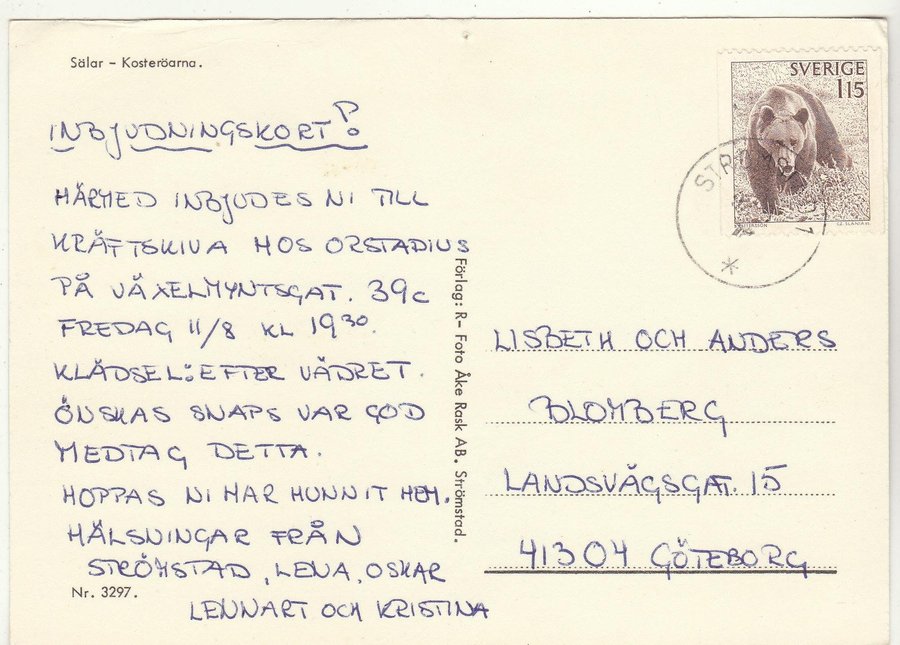 Sälar – Kosteröarna.
INBJUDNINGSKORT!
HÄRMED INBJUDES NI TILL
KRÄFTSKIVA HOS ORSTADIUS
PÅ VÄXELMYNTSGAT. 39c
FREDAG 11/8 KL 19³⁰.
KLÄDSEL: EFTER VÄDRET.
ÖNSKAS SNAPS VAR GOD
MEDTAG DETTA.
HOPPAS NI HAR HUNNIT HEM.
HÄLSNINGAR FRÅN
STRÖMSTAD, LENA, OSKAR
LENNART OCH KRISTINA
Nr. 3297.
Förlag: R- Foto Åke Rask AB. Strömstad.
SVERIGE
115
LISBETH OCH ANDERS
BLOMBERG
LANDSVÄGSGAT. 15
413 04 GÖTEBORG